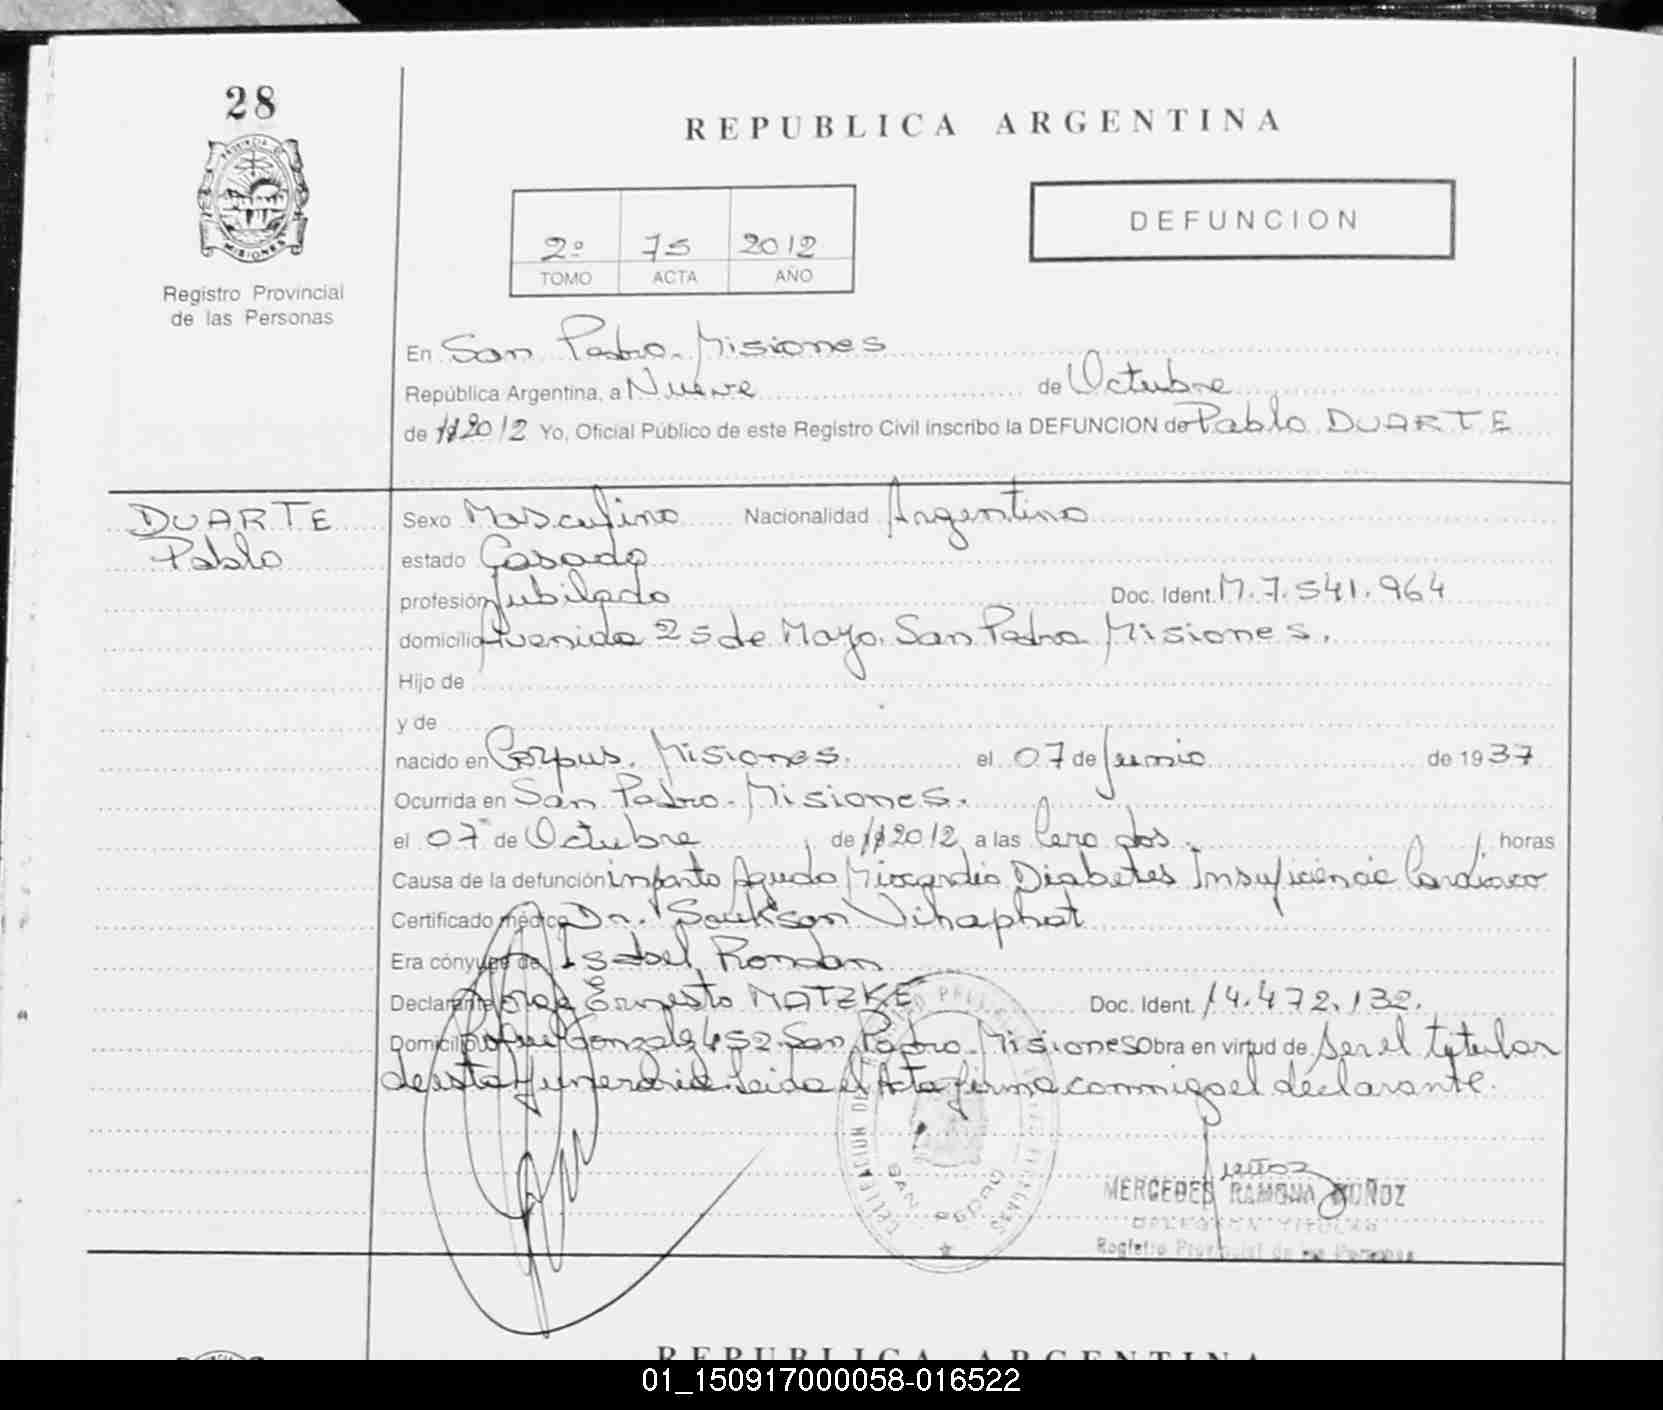 28
PROVINCIA DE
MISIONES
Registro Provincial
de las Personas
REPUBLICA ARGENTINA
2º 75 2012
TOMO ACTA AÑO
DEFUNCION
En San Pedro. Misiones
República Argentina, a Nueve de Octubre
de 2012 Yo, Oficial Público de este Registro Civil inscribo la DEFUNCION de Pablo DUARTE
DUARTE
Pablo
Sexo Masculino Nacionalidad Argentino
estado Casado
profesión Jubilado Doc. Ident. M.7.541.964
domicilio Avenida 25 de Mayo. San Pedro Misiones.
Hijo de
y de
nacido en Corpus. Misiones. el 07 de Junio de 1937
Ocurrida en San Pedro. Misiones.
el 07 de Octubre de 2012 a las Cero dos. horas
Causa de la defunción infarto Agudo Miocardio Diabetes Insuficiencia Cardiaca
Certificado médico Dr. Vihaphat
Era cónyuge de Isabel Rondan
Declarante Jorge Ernesto MATZKE Doc. Ident. 14.472.132.
Domicilio Roque Gonzalez 452. San Pedro. Misiones Obra en virtud de Ser el titular
de esta funeraria. Leida el Acta firma conmigo el declarante.
SAN PEDRO
MERCEDES RAMONA MUÑOZ
Registro Provincial de las Personas
REPUBLICA ARGENTINA
01_150917000058-016522